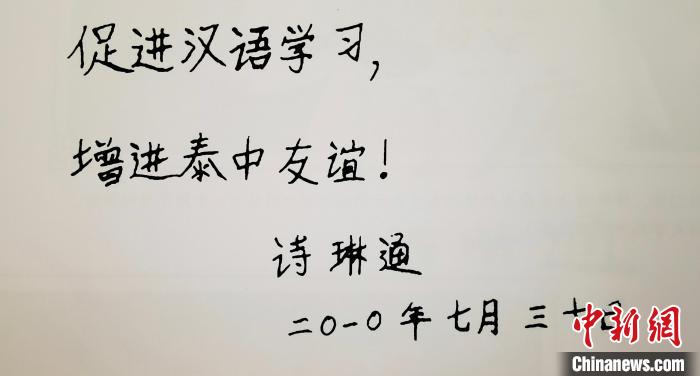 促进汉语学习,
增进泰中友谊!
诗琳通
二〇一〇年七月三十日
中新網
Chinanews.com